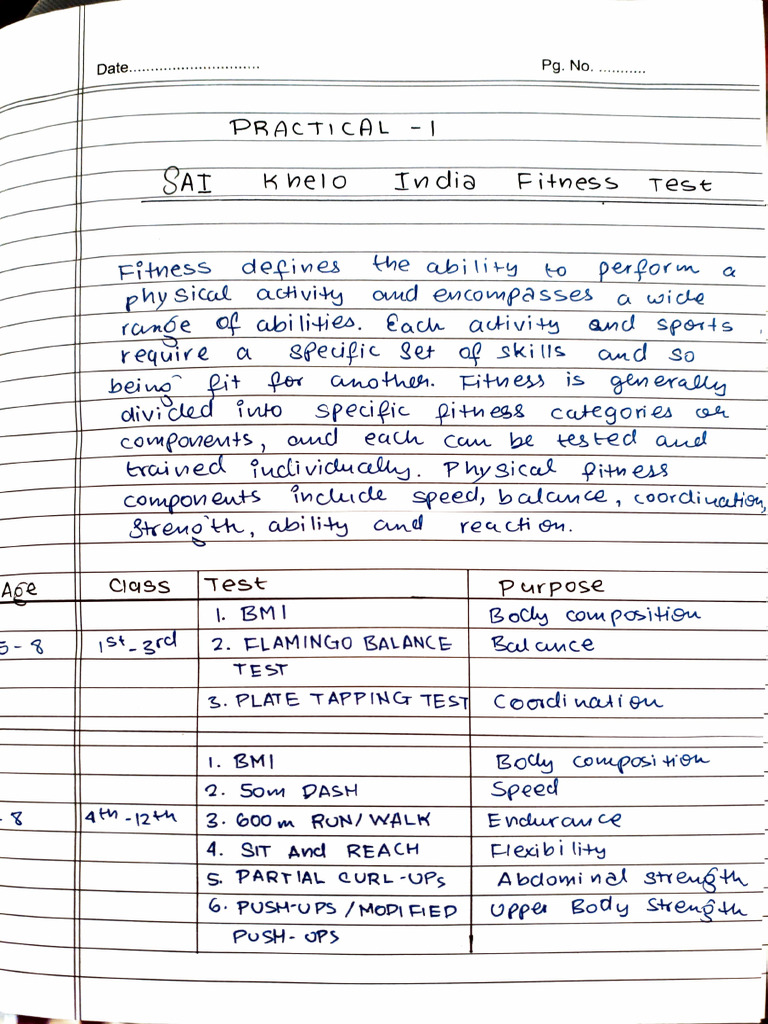 Date..............................
Pg. No. ...........
PRACTICAL - 1
SAI Khelo India Fitness Test
Fitness defines the ability to perform a
physical activity and encompasses a wide
range of abilities. Each activity and sports
require a specific set of skills and so
being fit for another. Fitness is generally
divided into specific fitness categories or
components, and each can be tested and
trained individually. Physical fitness
components include speed, balance, coordination,
strength, ability and reaction.
Age Class Test Purpose
1. BMI Body composition
5 - 8 1st - 3rd 2. FLAMINGO BALANCE Balance
TEST
3. PLATE TAPPING TEST Coordination
1. BMI Body composition
2. 50m DASH Speed
- 8 4th - 12th 3. 600m RUN/WALK Endurance
4. SIT and REACH Flexibility
5. PARTIAL CURL-UPs Abdominal strength
6. PUSH-UPS / MODIFIED Upper Body Strength
PUSH-UPS